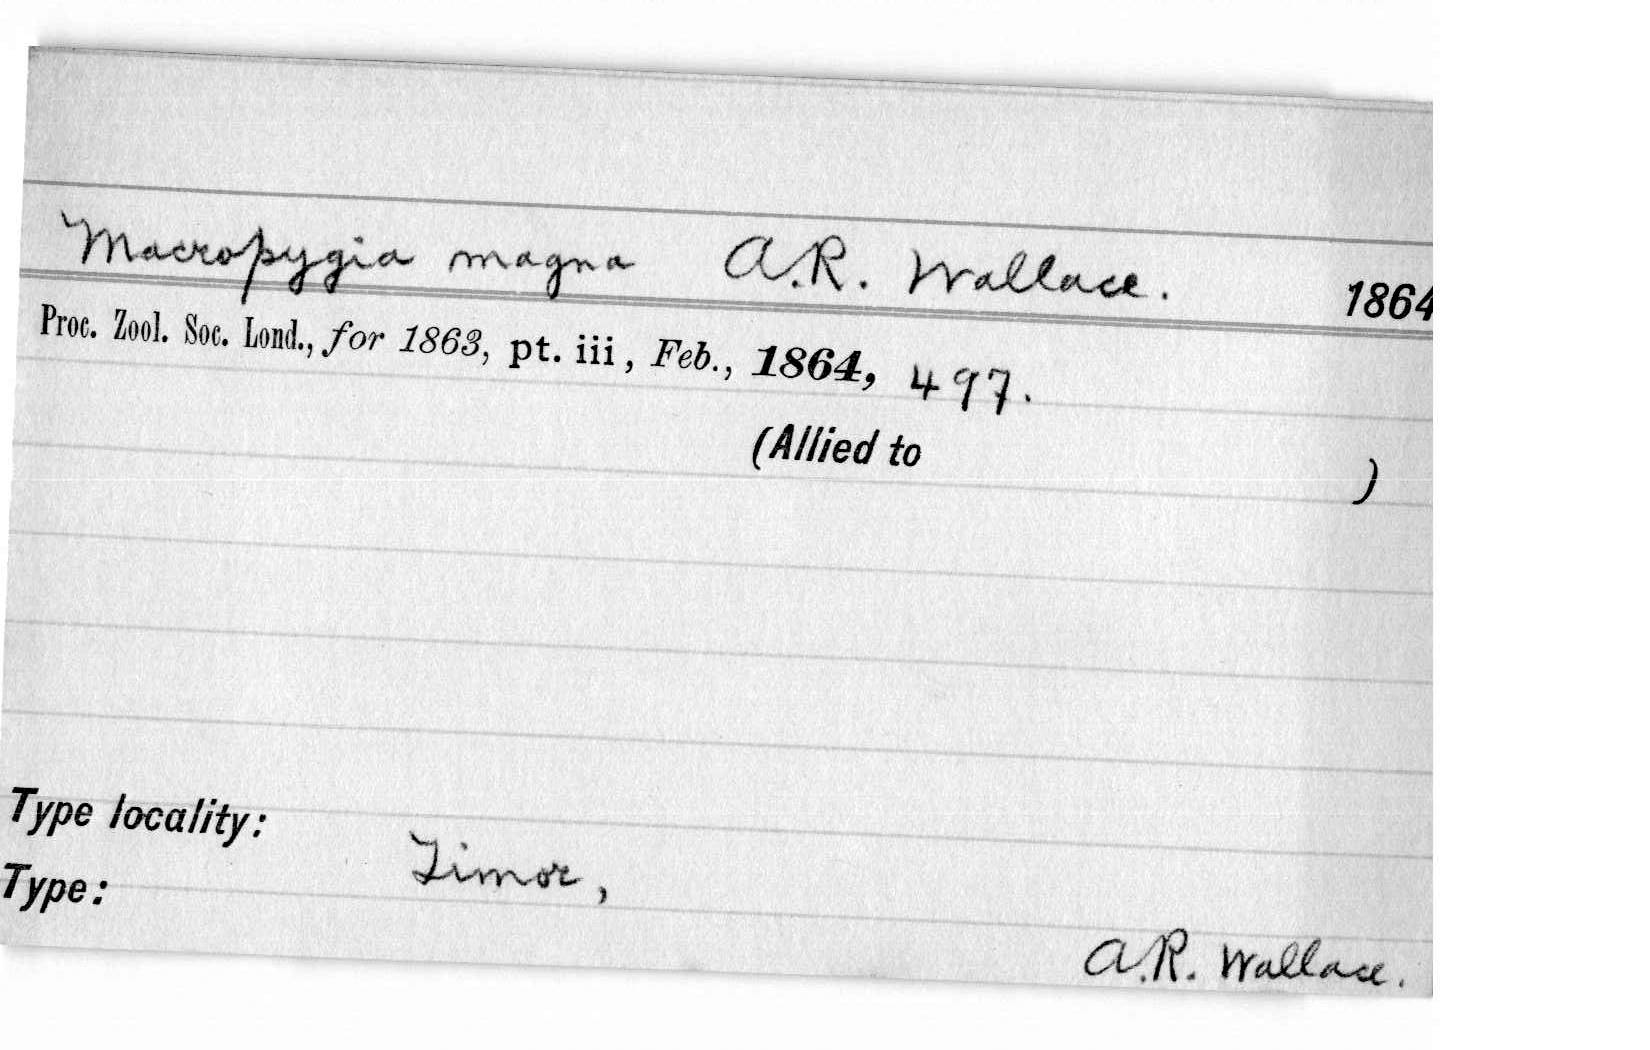 Macropygia magna A.R. Wallace. 1864
Proc. Zool. Soc. Lond., for 1863, pt. iii, Feb., 1864, 497.
(Allied to )
Type locality:
Timor,
Type:
A.R. Wallace.